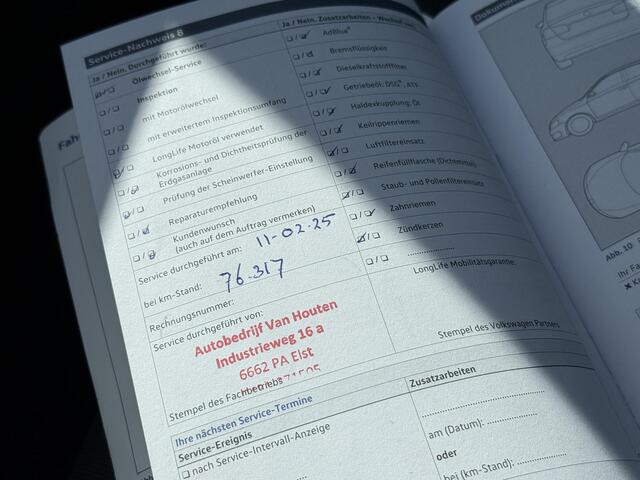 Service-Nachweis 8
Ja / Nein, Durchgeführt wurde:
Ölwechsel-Service
Inspektion
mit Motorölwechsel
mit erweitertem Inspektionsumfang
LongLife Motoröl verwendet
Korrosions- und Dichtheitsprüfung der
Erdgasanlage
Prüfung der Scheinwerfer-Einstellung
Reparaturempfehlung
Kundenwunsch
(auch auf dem Auftrag vermerken)
Service durchgeführt am: 11-02-25
bei km-Stand: 76.317
Rechnungsnummer:
Service durchgeführt von:
Autobedrijf Van Houten
Industrieweg 16 a
6662 PA Elst
Stempel des Fachbetriebs
Ja / Nein, Zusatzarbeiten - Wechsel
AdBlue®
Bremsflüssigkeit
Dieselkraftstofffilter
Getriebeöl: DSG®, ATF
Haldexkupplung: Öl
Keilrippenriemen
Luftfiltereinsatz
Reifenfüllflasche (Dichtmittel)
Staub- und Pollenfiltereinsatz
Zahnriemen
Zündkerzen
LongLife Mobilitätsgarantie:
Stempel des Volkswagen Partners
Ihre nächsten Service-Termine
Service-Ereignis
nach Service-Intervall-Anzeige
Zusatzarbeiten
am (Datum):
oder
bei (km-Stand):
Abb. 10